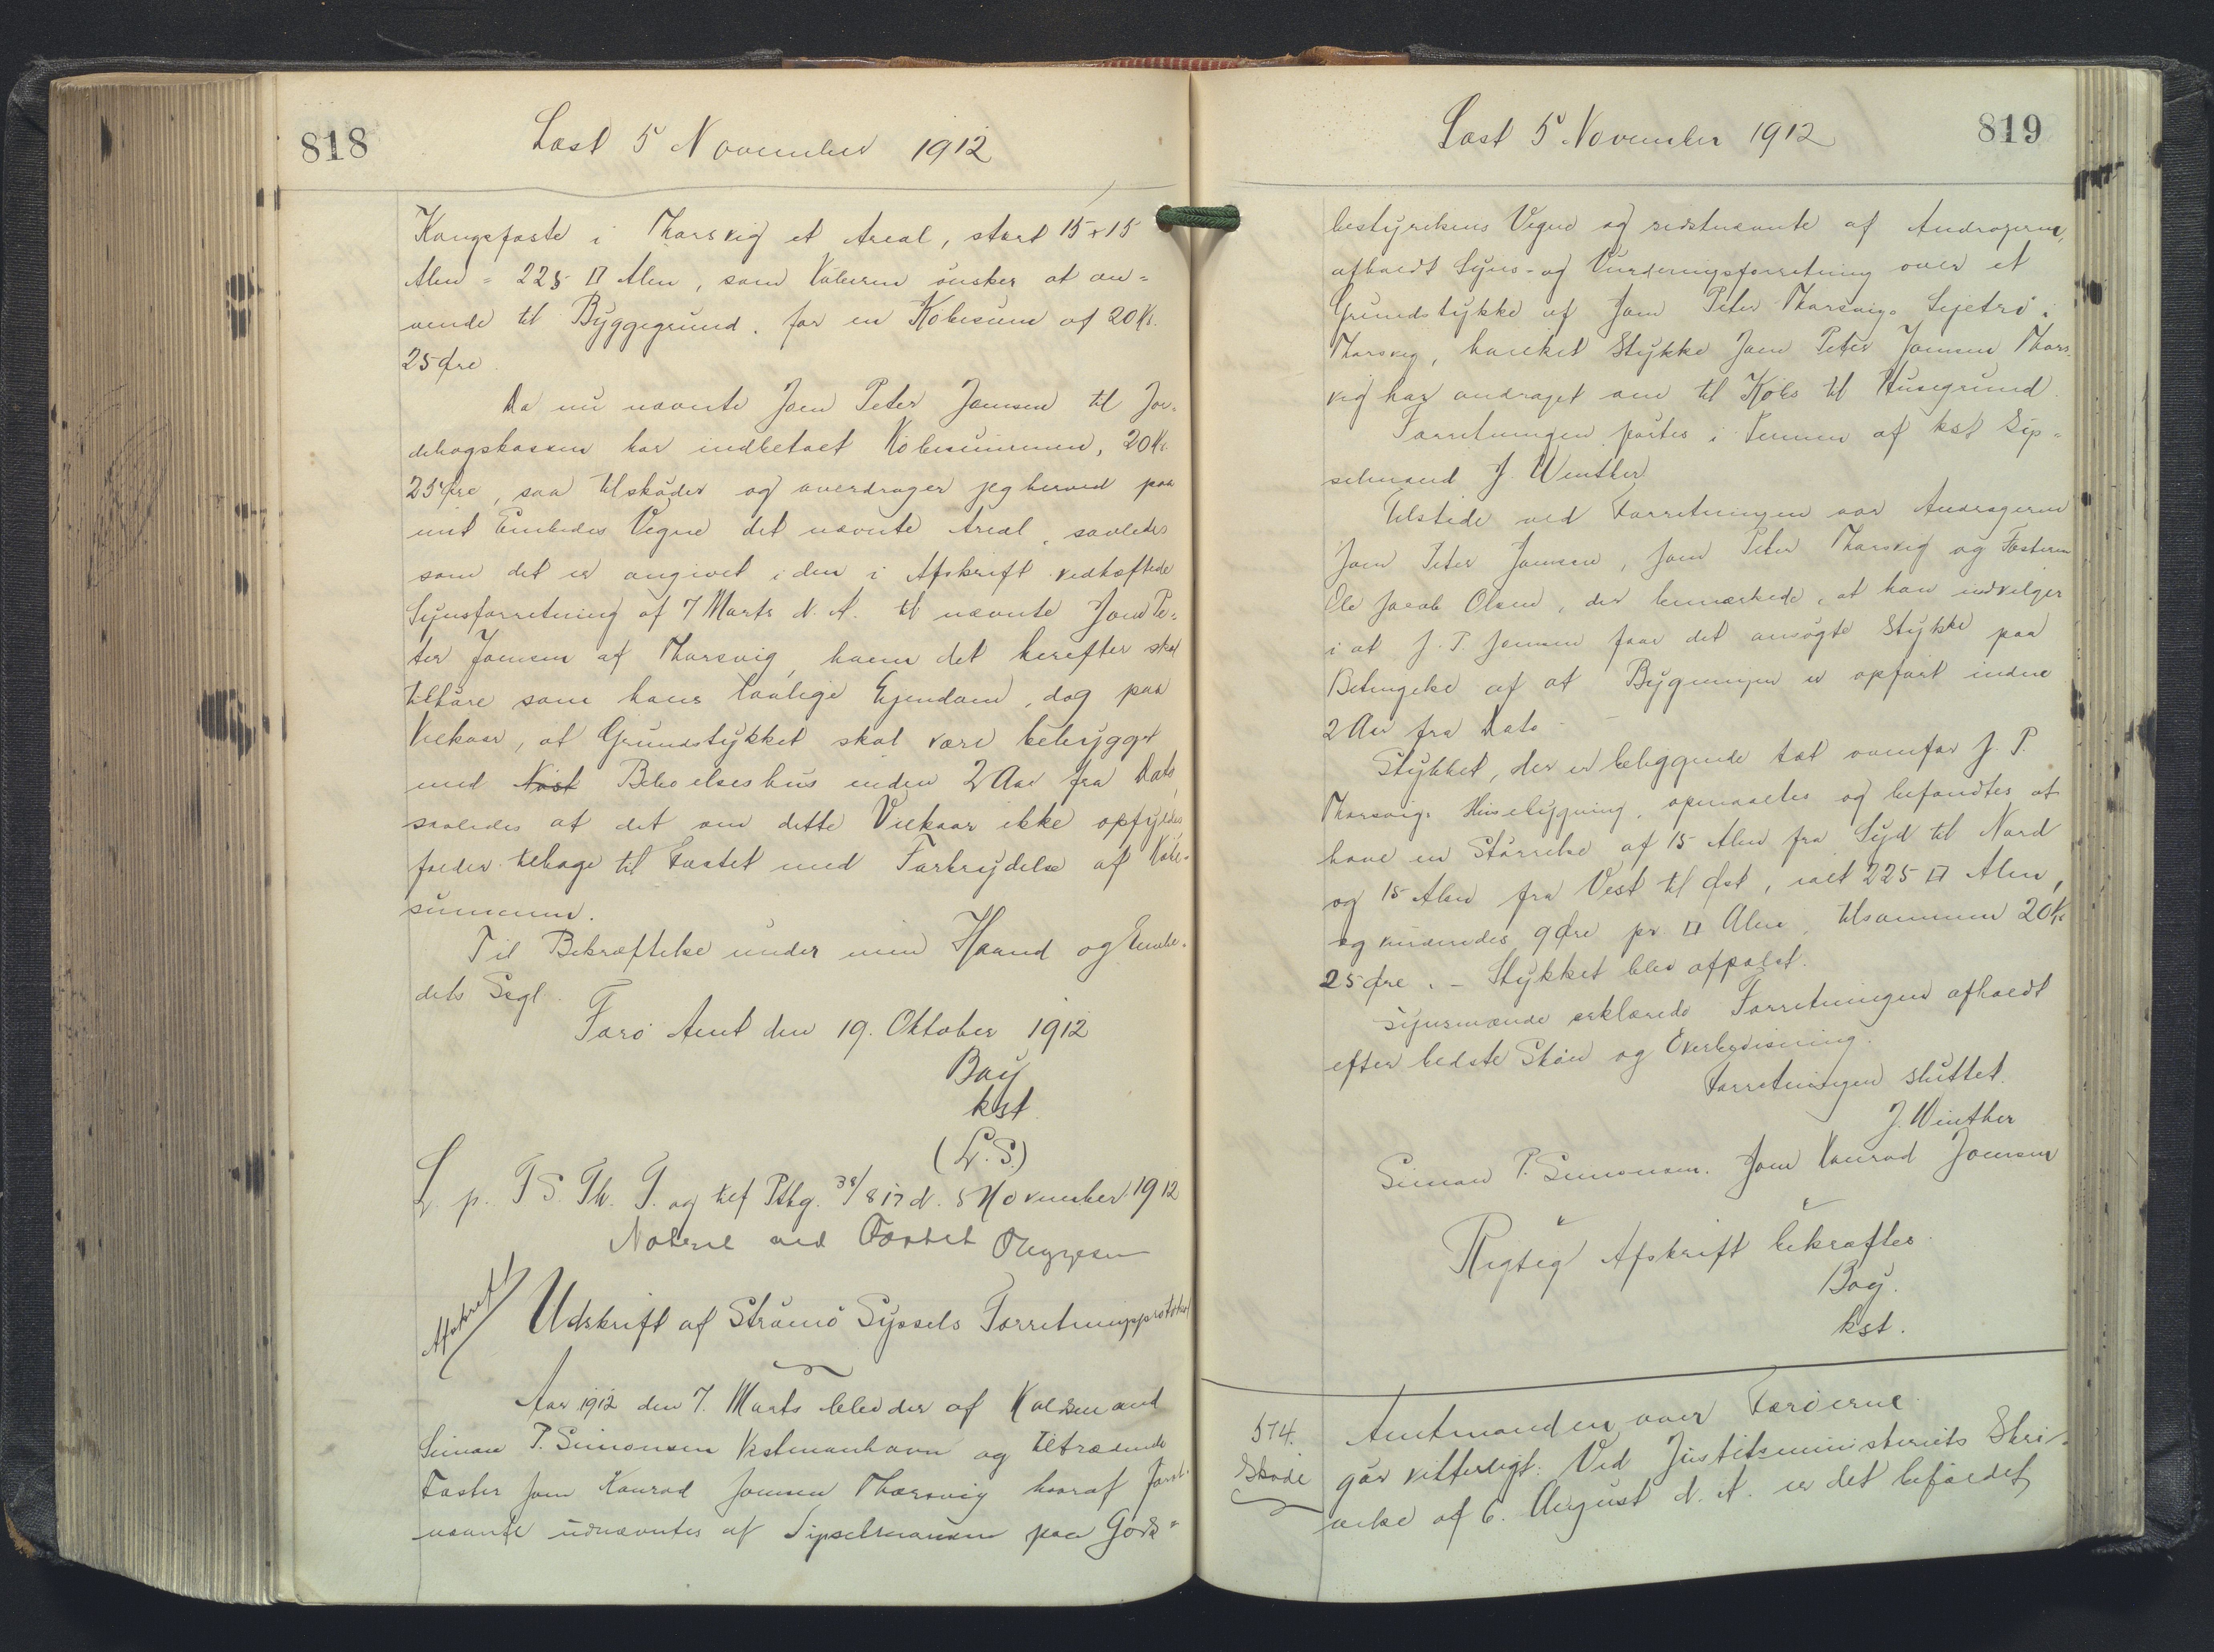 818
Læst 5 November 1912
Kongsfæste i Thorsvig et Areal, stort 15 x 15
Alen = 225 □ Alen, som Køberen ønsker at an=
vende til Byggegrund, for en Købesum af 20 Kr.
25 Øre.
Da nu nævnte Joen Peter Joensen til Jor=
debogskassen har indbetalt Købesummen, 20 Kr.
25 Øre, saa tilskøder og overdrager jeg herved paa
mit Embedes Vegne det nævnte Areal, saaledes
som det er angivet i den i Afskrift vedhæftede
Synsforretning af 7 Marts d. A. til nævnte Joen Pe=
ter Joensen af Thorsvig, hvem det herefter skal
tilhøre som hans lovlige Ejendom, dog paa
Vilkaar, at Grundstykket skal være bebygget
med Nøst Beboelseshus inden 2 Aar fra Dato,
saaledes at det om dette Vilkaar ikke opfyldes
falder tilbage til Fæstet med Fortrydelse af Købe=
summen.
Til Bekræftelse under min Haand og Embe=
dets Segl.
Færø Amt den 19. Oktober 1912
Bay
kst.
(L. S.)
L. p. F S. Th. T. og Ptbg. 38/817 d. 5 November 1912
Noteret ved Fæstet
Afskrift
Udskrift af Strømø Syssels Forretningsprotokol
Aar 1912 den 7. Marts blev der af Voldsmand
Simon P. Simonsen Vestmanhavn og tiltrædende
Fæster Joen Konrad Joensen Thorsvig hvoraf først=
nævnte udnævntes af Sysselmanden paa Gods=
819
Læst 5 November 1912
bestyrelsens Vegne og sidstnævnte af Andrageren,
afholdt Syns- og Vurderingsforretning over et
Grundstykke af Joen Peter Thorsvigs Lejetrø i
Thorsvig, hvilket Stykke Joen Peter Joensen Thors=
vig har andraget om til Købs til Husegrund.
Forretningen førtes i Pennen af kst Sys=
selmand J. Winther
Tilstede ved Forretningen var Andrageren
Joen Peter Joensen, Joen Peter Thorsvig og Fæsteren
Ole Jacob Olsen, der bemærkede, at han indvilger
i at J. P. Joensen faar det ansøgte Stykke paa
Betingelse af at Bygningen er opført inden
2 Aar fra Dato -
Stykket, der er beliggende tæt ovenfor J. P.
Thorsvigs Husebygning, opmaaltes og befandtes at
have en Størrelse af 15 Alen fra Syd til Nord
og 15 Alen fra Vest til Øst, ialt 225 □ Alen,
og vurderedes 9 Øre pr □ Alen, tilsammen 20 Kr
25 Øre. - Stykket blev afpælet.
Synsmænde erklærede Forretningen afholdt
efter bedste Skøn og Overbevisning.
Forretningen sluttet.
J. Winther
Simon P. Simonsen. Joen Konrad Joensen
Rigtig Afskrift bekræftes.
Bay.
kst.
574.
Skøde
Amtmanden over Færøerne
gør vitterligt: Ved Justitsministeriets Skri=
velse af 6. August d. A. er det befalet